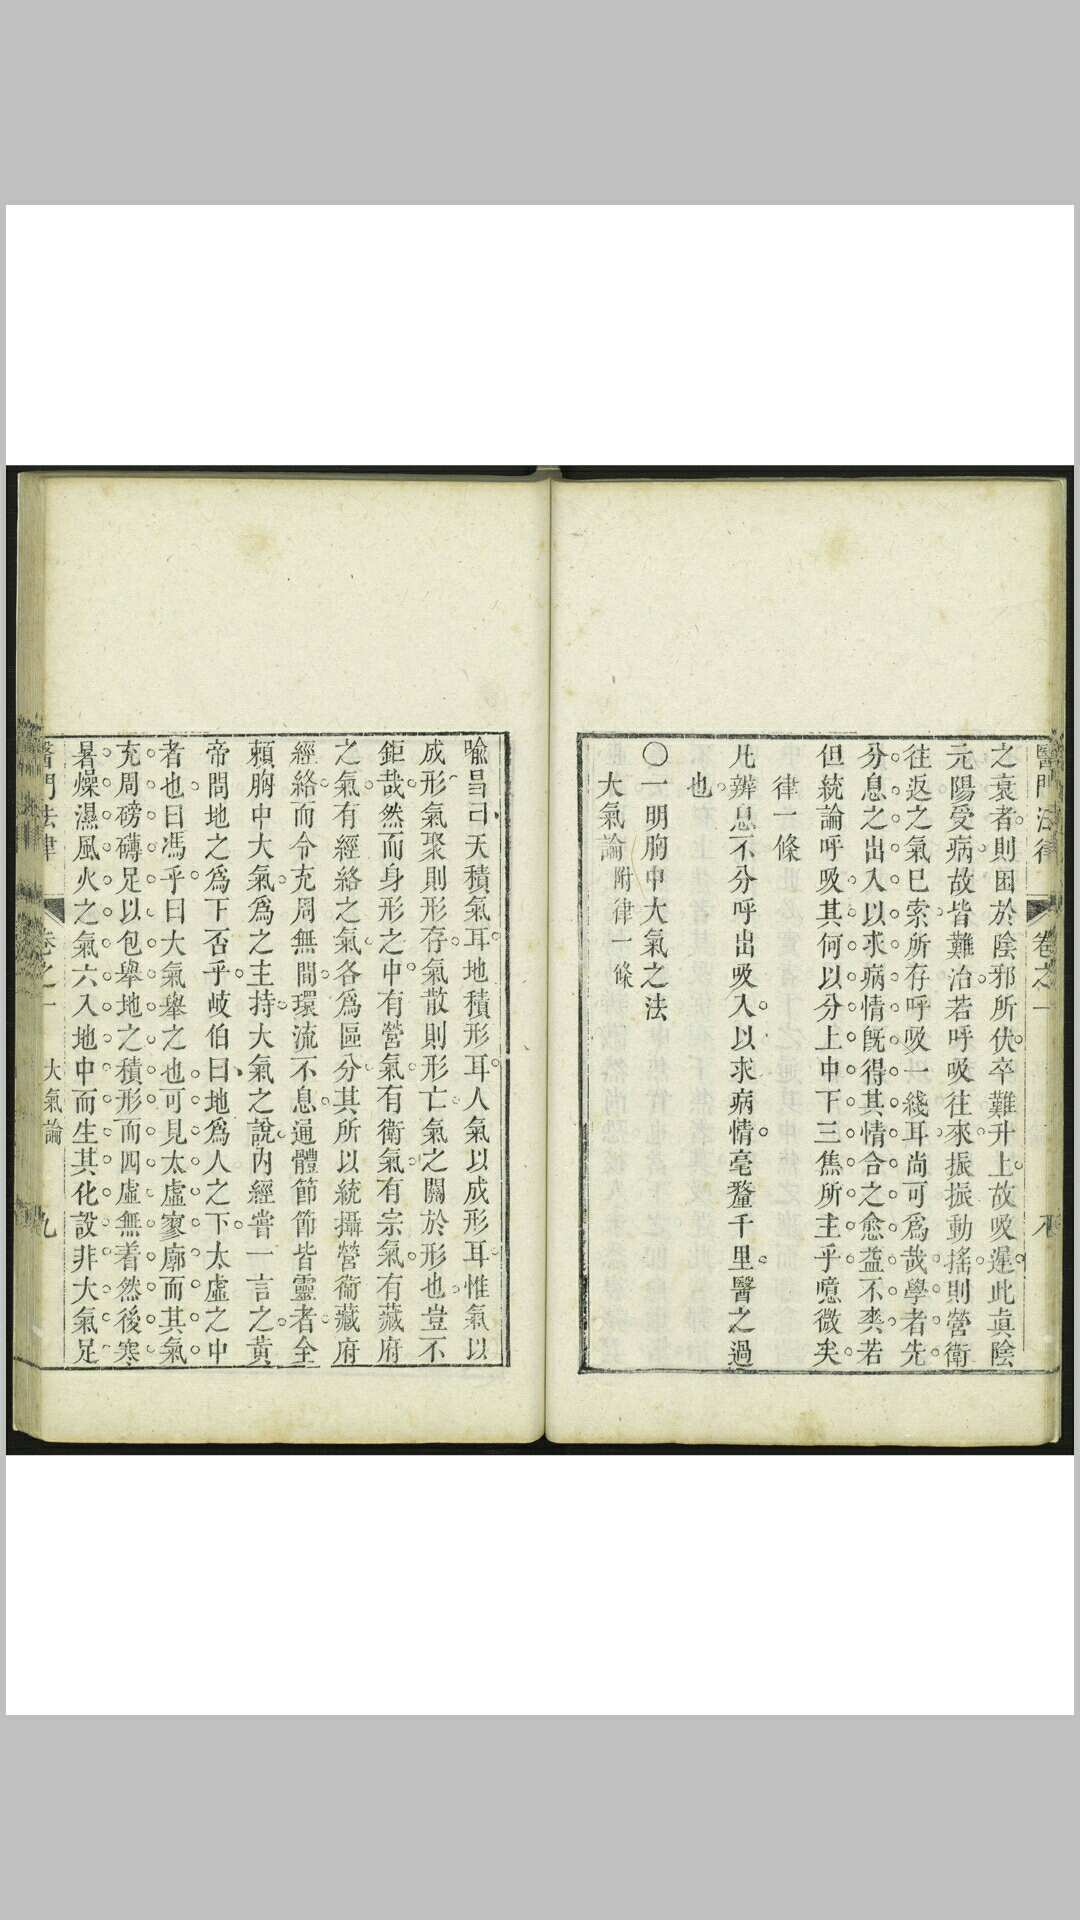 醫門法律 卷之一 八
之衰者則困於陰邪所伏卒難升上故吸遲此眞陰
元陽受病故皆難治若呼吸往來振振動搖則營衛
往返之氣已索所存呼吸一綫耳尚可爲哉學者先
分息之出入以求病情旣得其情合之愈益不爽若
但統論呼吸其何以分上中下三焦所主乎噫微矣
律一條
凡辨息不分呼出吸入以求病情毫釐千里醫之過
也
〇一明胸中大氣之法
大氣論 附律一條
喻昌曰天積氣耳地積形耳人氣以成形耳惟氣以
成形氣聚則形存氣散則形亡氣之關於形也豈不
鉅哉然而身形之中有營氣有衛氣有宗氣有藏府
之氣有經絡之氣各爲區分其所以統攝營衞藏府
經絡而令充周無間環流不息通體節節皆靈者全
賴胸中大氣爲之主持大氣之說內經嘗一言之黃
帝問地之爲下否乎岐伯曰地爲人之下太虛之中
者也曰馮乎曰大氣舉之也可見太虛寥廓而其氣
充周磅礴足以包舉地之積形而四虛無着然後寒
暑燥濕風火之氣六入地中而生其化設非大氣足
醫門法律 卷之一 大氣論 九